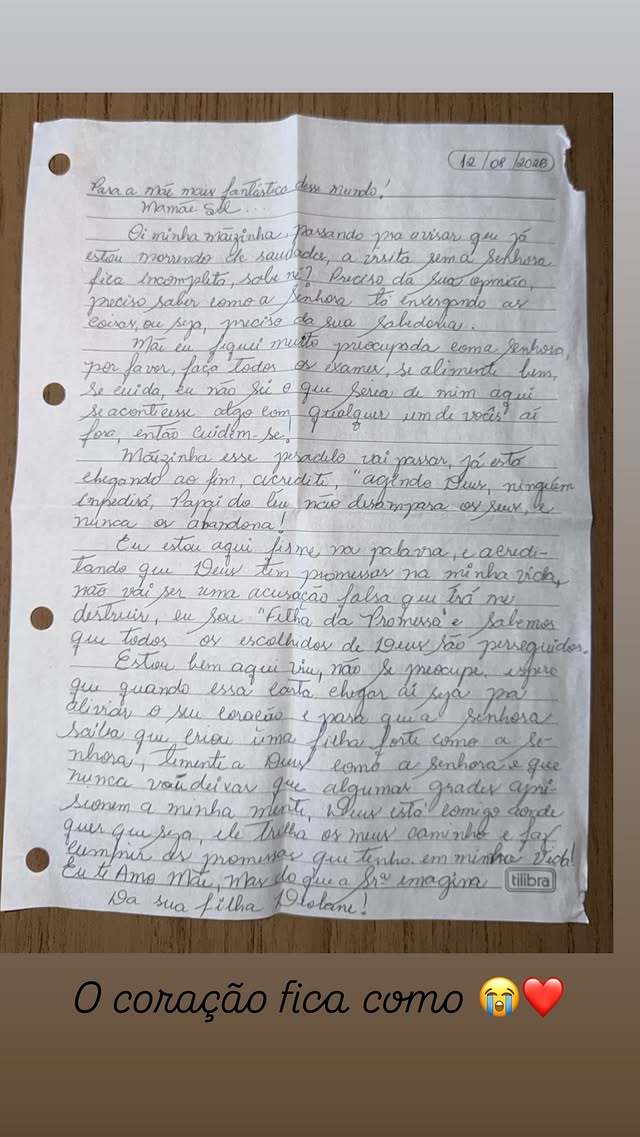 12/08/2026
Para a mãe mais fantástica desse mundo!
Mamãe Sol...
Oi minha mãizinha, passando pra avisar que já
estou morrendo de saudades, a visita sem a Senhora
fica incompleta, sabe né? Preciso da sua opinião,
preciso saber como a Senhora tá enxergando as
coisas, ou seja, preciso da sua sabedoria.
Mãe eu fiquei muito preocupada com a Senhora,
por favor, faça todos os exames, se alimente bem,
se cuida, eu não sei o que seria de mim aqui
se acontecesse algo com qualquer um de vocês aí
fora, então cuidem-se!
Mãizinha esse pesadelo vai passar, já está
chegando ao fim, acredite, "agindo Deus, ninguém
impedirá, Papai do Céu não desampara os seus, e
nunca os abandona!
Eu estou aqui firme, na palavra, e acredi-
tando que Deus tem promessas na minha vida,
não vai ser uma acusação falsa que irá me
destruir, eu sou "Filha da Promessa" e sabemos
que todos os escolhidos de Deus são perseguidos.
Estou bem aqui viu, não se preocupe, espero
que quando essa carta chegar aí seja pra
aliviar o seu coração e para que a Senhora
saiba que criou uma filha forte como a Se-
nhora, temente a Deus como a Senhora e que
nunca vai deixar que algumas grades apri-
sionem a minha mente, Deus está comigo aonde
quer que seja, ele trilha os meus caminhos e faz
cumprir as promessas que tenho em minha vida!
Eu te Amo Mãe, mas do que a Srª imagina
tilibra
Da sua filha Deolane!
O coração fica como 😭❤️